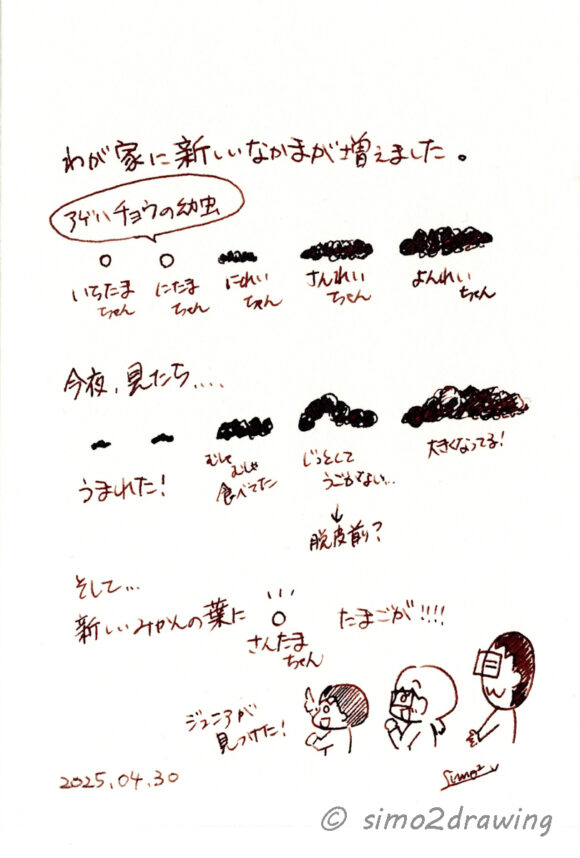 わが家に新しいなかまが増えました。
アゲハチョウの幼虫
いちたまちゃん
にたまちゃん
にれいちゃん
さんれいちゃん
よんれいちゃん
今夜、見たら....
うまれた!
むしゃむしゃ食べてた
じっとしてうごかない...
↓
脱皮前?
大きくなってる!
そして...
新しいみかんの葉に
さんたまちゃん
たまごが!!!!
ジュニアが
見つけた!
2025.04.30
simo2
© simo2drawing